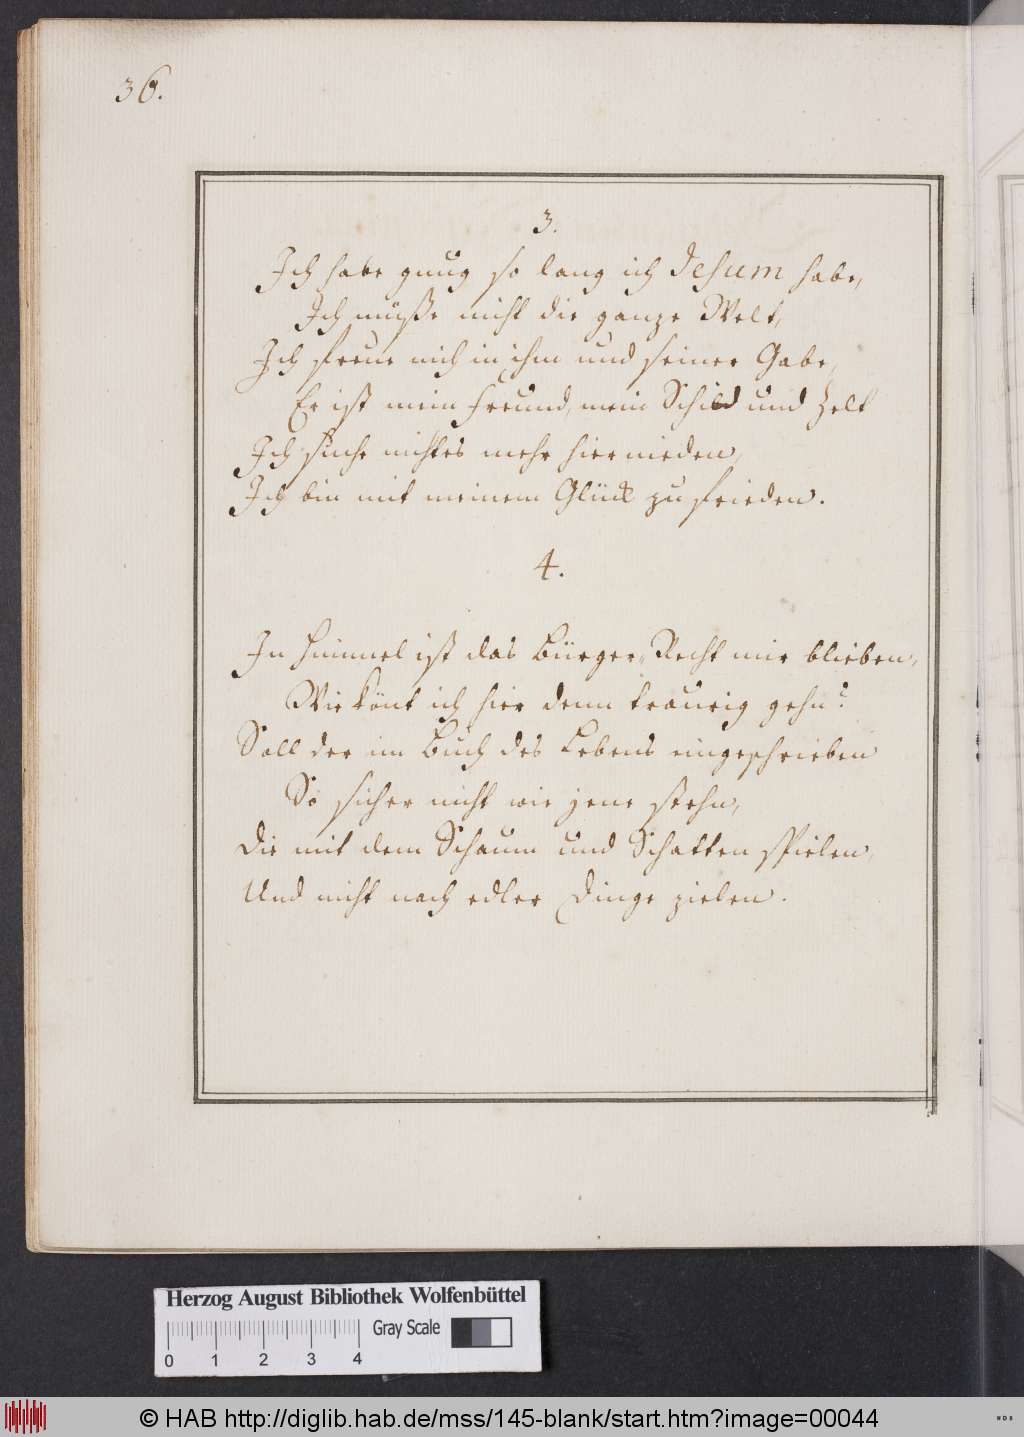 36.
3.
Ich habe gnug so lang ich Jesum habe,
Ich müste nicht die ganze Welt,
Ich freue mich in ihm und seiner Gabe,
Er ist mein Freund, mein Schild und Zelt
Ich suche nichtes mehr hiernieden,
Ich bin mit meinem Glück zufrieden.
4.
Im Himmel ist das Bürger-Recht mir blieben,
Wie könt ich hier denn traurig gehn?
Soll der im Buch des Lebens eingeschrieben
So sicher nicht wie jene stehn,
Die mit dem Schaum und Schatten spielen,
Und nicht nach edler Dinge zielen.
Herzog August Bibliothek Wolfenbüttel
Gray Scale
0 1 2 3 4
© HAB http://diglib.hab.de/mss/145-blank/start.htm?image=00044